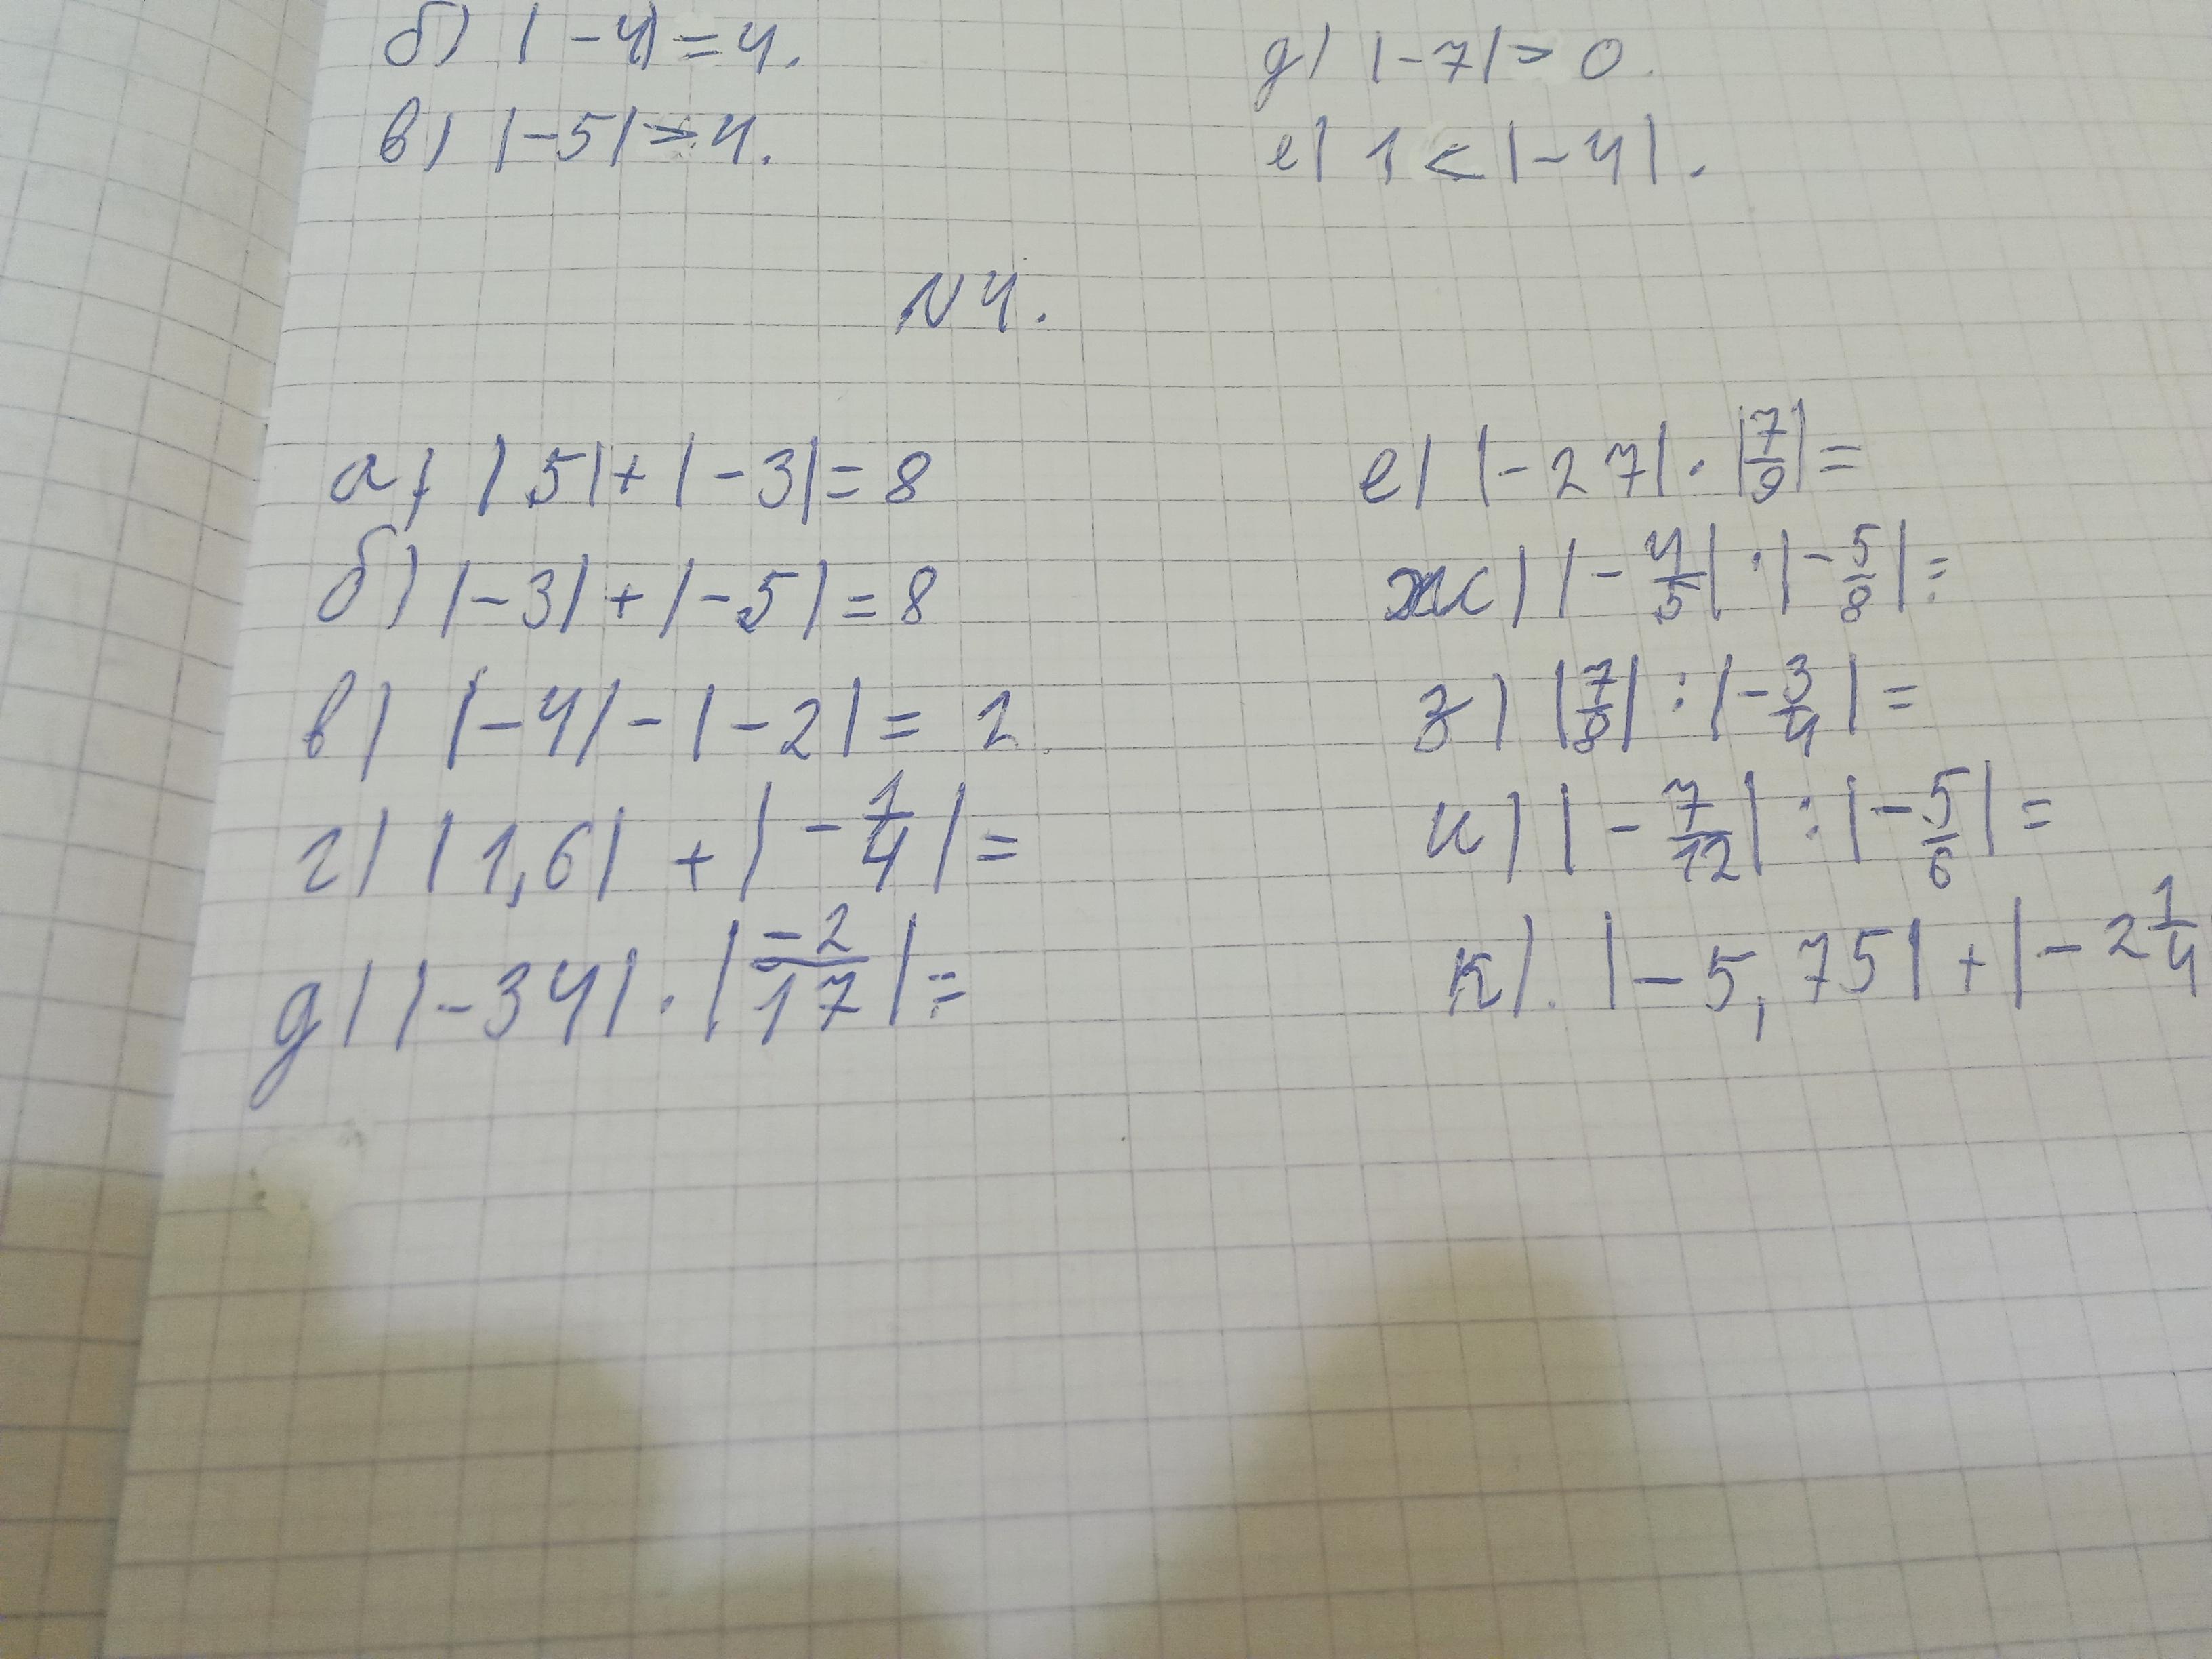 б) |-4|=4.
в) |-5|>4.
д) |-7|> 0.
е) 1 < |-4|.
N4.
а) |5|+|-3|=8
б) |-3|+|-5|=8
в) |-4|-|-2|= 2
г) |1,6| + |-1/4|=
д) |-34|·|-2/17|=
е) |-27|·|7/9|=
ж) |-4/5|·|-5/8|=
з) |7/8|:|-3/4|=
и) |-7/12|:|-5/6|=
к). |-5,75|+|-2 1/4